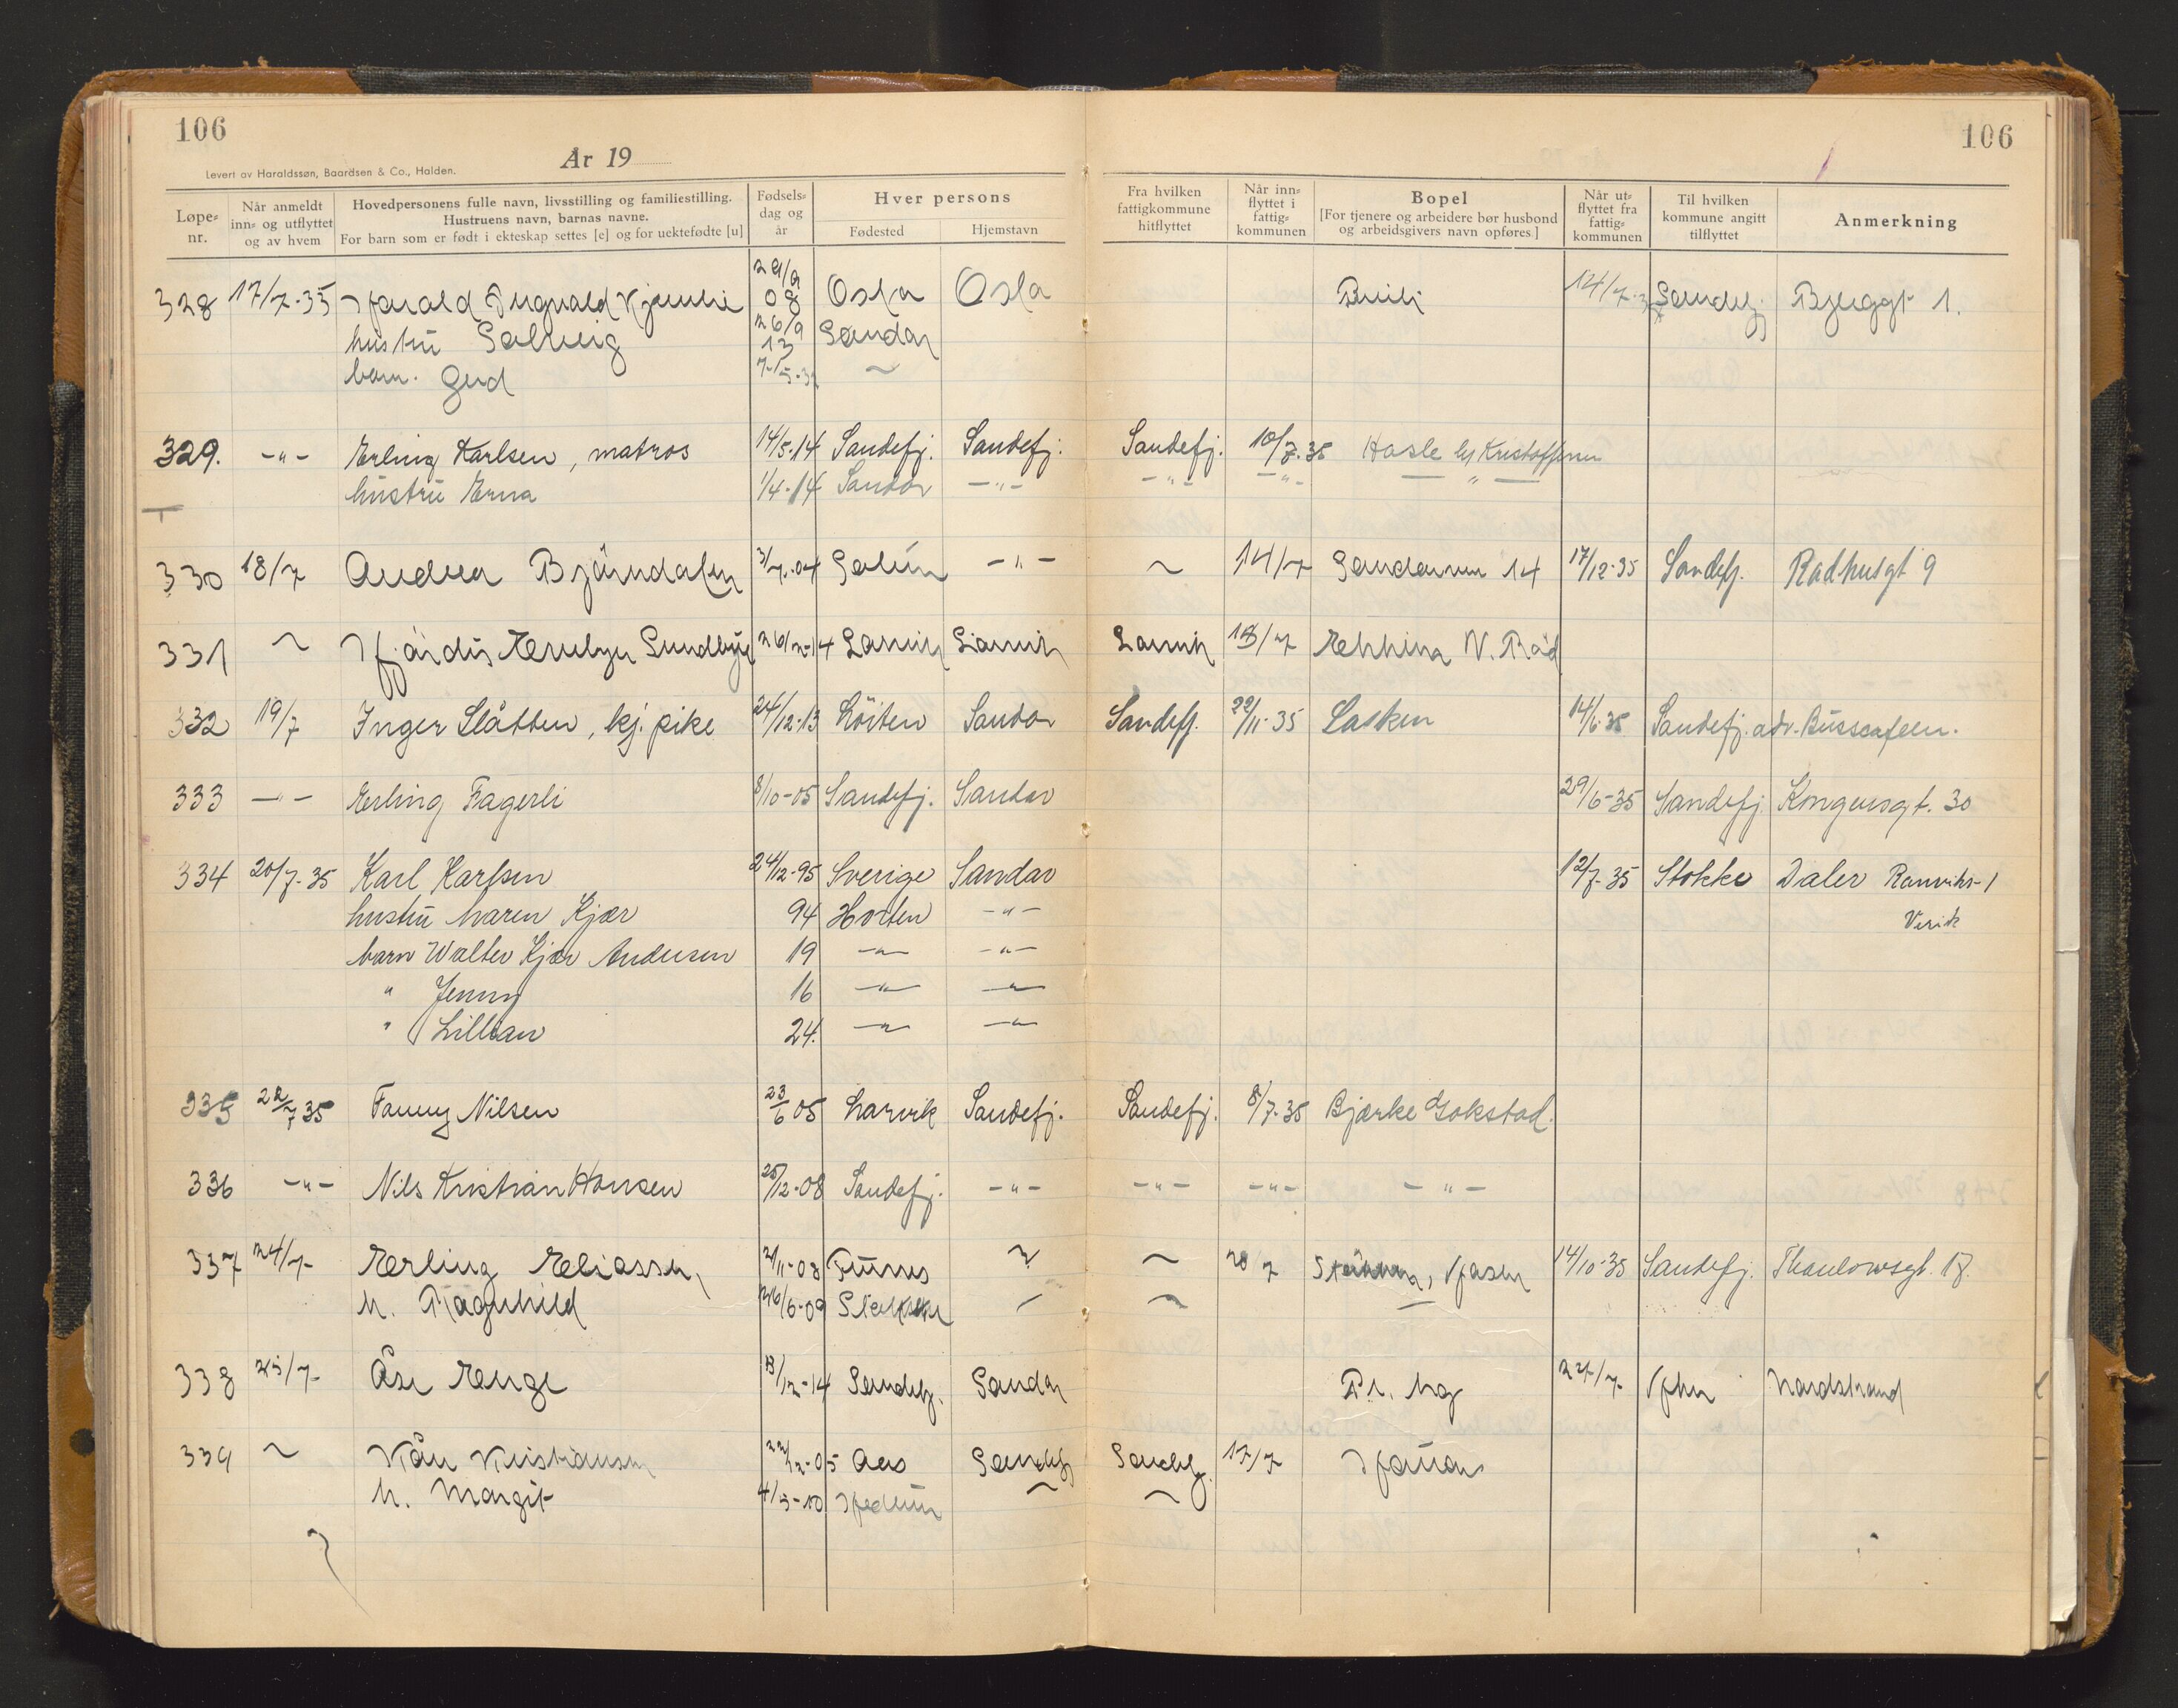 106
106
År 19
Levert av Haraldssøn, Baardsen & Co., Halden.
Løpe-nr. Når anmeldt inn- og utflyttet og av hvem Hovedpersonens fulle navn, livsstilling og familiestilling. Hustruens navn, barnas navne. For barn som er født i ekteskap settes [e] og for uektefødte [u] Fødsels-dag og år Hver persons Fødested Hjemstavn Fra hvilken fattigkommune hitflyttet Når inn-flyttet i fattig-kommunen Bopel [For tjenere og arbeidere bør husbond og arbeidsgivers navn opføres] Når ut-flyttet fra fattig-kommunen Til hvilken kommune angitt tilflyttet Anmerkning
328 17/7-35 Harald 29/9 08 Oslo Oslo 14/7-35 Sandefj. Bjeggt 1.
hustru Solveig 26/9 13 Sandar
barn. Gerd ~
329. -"- Erling Karlsen, matros 14/5-14 Sandefj. Sandefj. Sandefj. 10/7-35 Hasle
hustru Erna 1/4-14 Sandar -"- -"- -"- -"-
330 18/7 Andrea Bjørndalen 3/7-04 -"- ~ 14/7 14 17/12-35 Sandefj. Rådhusgt 9
331 ~ Hjørdis Sundbye 26/2-14 Larvik Larvik Larvik 18/7 N. Råd
332 19/7 Inger Slåtten, kj. pike 24/12-13 Löiten Sandar Sandefj. 22/11-35 Lasken 14/6-35 Sandefj. adr. Busscafeen.
333 -"- Erling Fagerli 8/10-05 Sandefj. Sandar 29/6-35 Sandefj. Kongensgt. 30
334 20/7-35 Karl Karlsen 24/12-95 Sverige Sandar 12/7-35 Stokke Daler
hustru Maren Kjær 94 Horten -"-
barn Walter Kjær Andersen 19 -"- -"-
" Jenny 16 -"- -"-
" Lillian 24. -"- -"-
335 22/7 35 Fanny Nilsen 23/6 05 Larvik Sandefj. Sandefj. 8/7-35 Bjærke Gokstad.
336 -"- Nils Kristian Hansen 25/12-08 Sandefj. -"- -"- -"- -"-
337 24/7- Erling Eliassen 2/11-08 Furnes ~ ~ 20/7 14/10-35 Sandefj. Thaulowsgt. 17.
h. Ragnhild 26/6-09 ~ ~ —
338 25/7- Åse Enge 13/12-14 Sandefj. Sandar 24/7- Nordstrand
339 ~ Kåre Kristiansen 22/12-05 Aas Sandefj. Sandefj. 17/7
h. Margit 4/5-10 Hedrum ~ ~